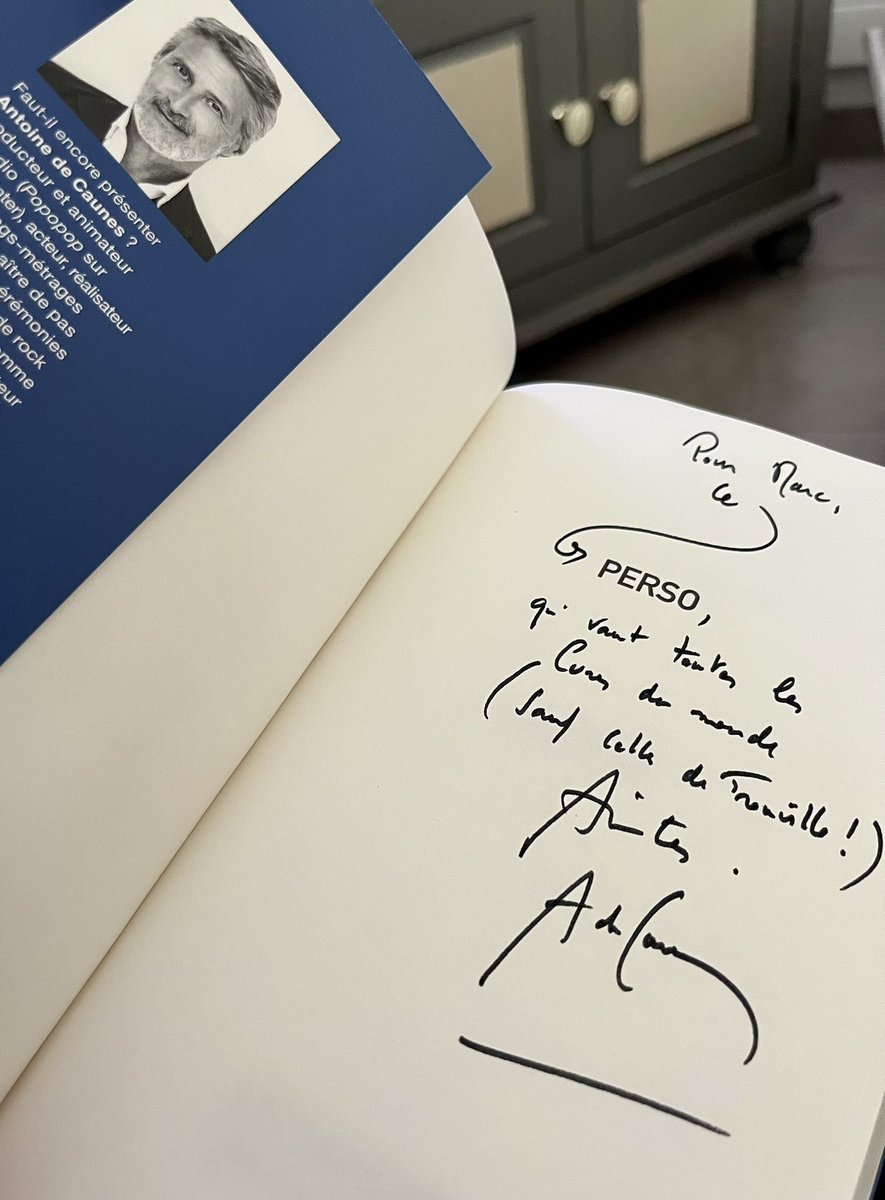 Faut-il encore présenter
Antoine de Caunes ?
oducteur et animateur
dio (Popopop sur
nter), acteur, réalisateur
gs-métrages
aître de pas
érémonies
de rock
omme
teur
Pour Marc,
ce
PERSO,
qui vaut toutes les
Cures du monde
(Sauf celle de Trouville !)
Amitiés.
A de Caunes